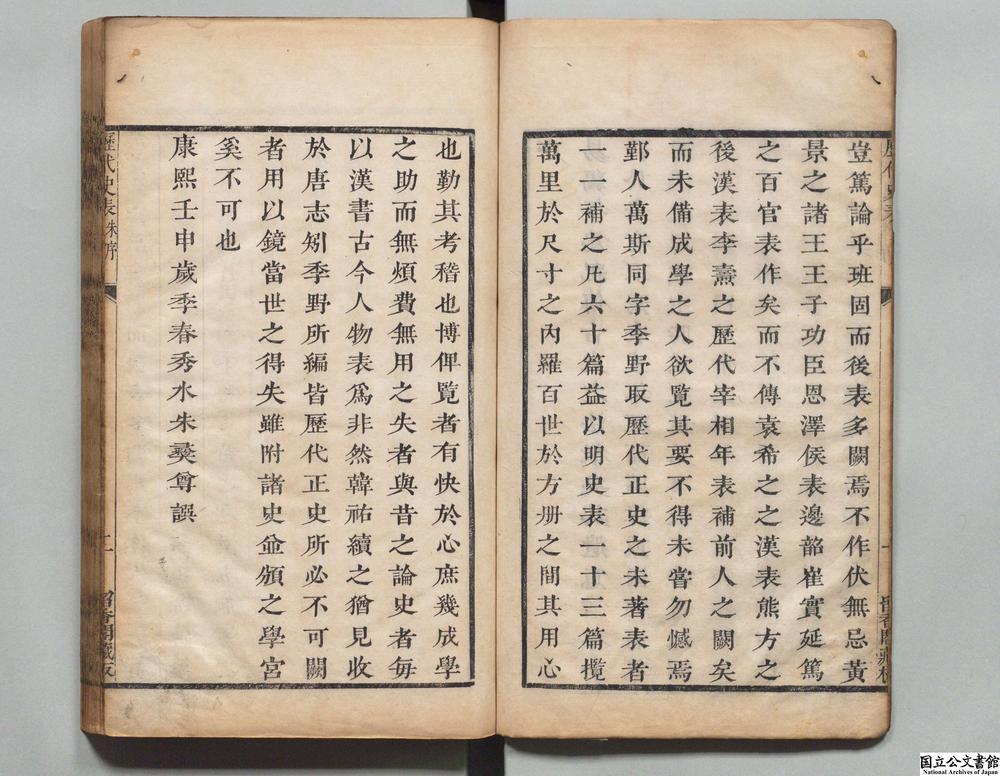 豈篤論乎班固而後表多闕焉不作伏無忌黃
景之諸王王子功臣恩澤侯表邊韶崔寔延篤
之百官表作矣而不傳袁希之之漢表熊方之
後漢表李燾之歷代宰相年表補前人之闕矣
而未備成學之人欲覽其要不得未嘗勿憾焉
鄞人萬斯同字季野取歷代正史之未著表者
一一補之凡六十篇益以明史表一十三篇攬
萬里於尺寸之內羅百世於方册之間其用心
也勤其考稽也博俾覽者有快於心庶幾成學
之助而無煩費無用之失者與昔之論史者每
以漢書古今人物表爲非然韓祐續之猶見收
於唐志矧季野所編皆歷代正史所必不可闕
者用以鏡當世之得失雖附諸史並頒之學宮
奚不可也
康熙壬申歲季春秀水朱彝尊譔
歷代史表 朱序
二
留香閣藏板
国立公文書館
National Archives of Japan